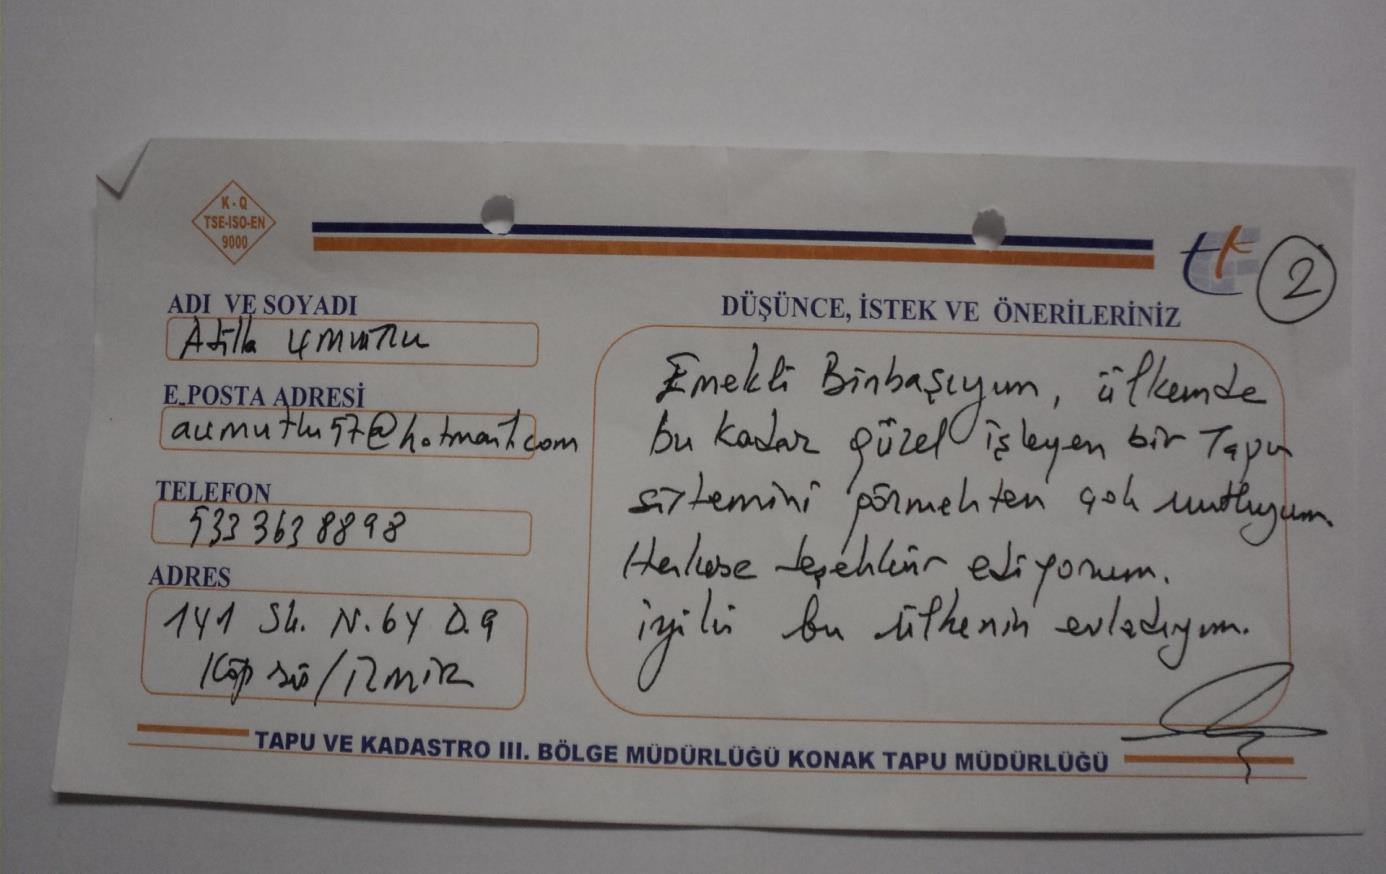 K - Q
TSE-ISO-EN
9000
tk
2
ADI VE SOYADI
Atilla Umutlu
E.POSTA ADRESİ
aumutlu57@hotmail.com
TELEFON
533 363 8898
ADRES
141 Sk. N.64 D.9
/İZMİR
DÜŞÜNCE, İSTEK VE ÖNERİLERİNİZ
Emekli Binbaşıyım, ülkemde
bu kadar güzel işleyen bir Tapu
sistemini görmekten çok mutluyum.
Herkese teşekkür ediyorum.
iyiki bu ülkenin evladıyım.
TAPU VE KADASTRO III. BÖLGE MÜDÜRLÜĞÜ KONAK TAPU MÜDÜRLÜĞÜ